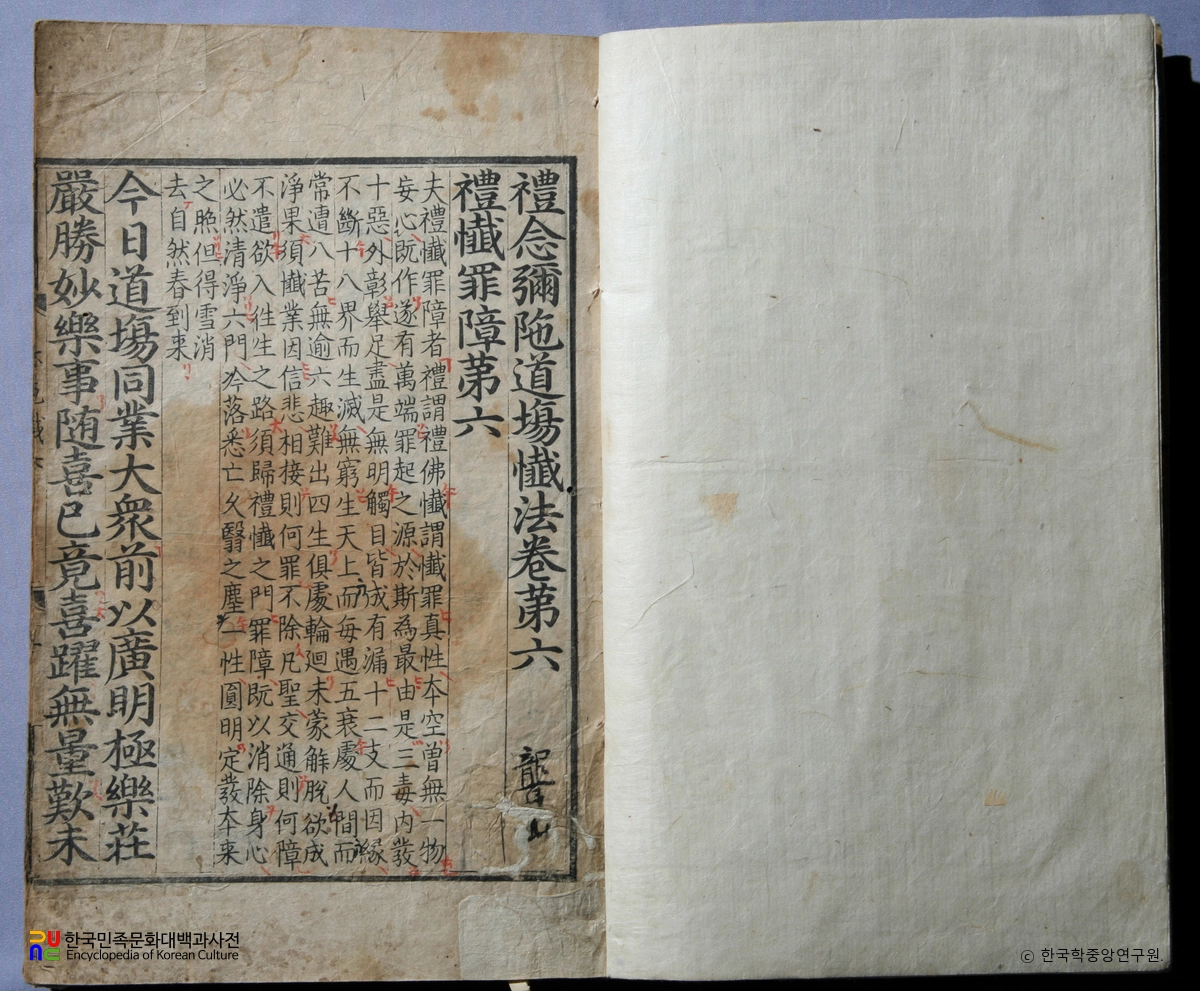 禮念彌陁道塲懺法卷苐六
聾
禮懺罪障苐六
夫禮懺罪障者禮謂禮佛懺謂懺罪真性夲空曽無一物
妄心既作遂有萬端罪起之源於斯為最由是三毒内發
十惡外彰舉足盡是無明觸目皆成有漏十二支而因緣
不斷十八界而生滅無窮生天上而每遇五衰處人間而
常遭八苦無逾六趣難出四生俱處輪廻未蒙觧脫欲成
淨果須懺業因信悲相接則何罪不除凡聖交通則何障
不遣欲入徃生之路須歸禮懺之門罪障既以消除身心
必然清淨六門冷落悉亡久翳之塵一性圓明定發夲来
之照但得雪消
去自然春到来
今日道塲同業大衆前以廣明極樂莊
嚴勝妙樂事随喜已竟喜躍無量歎未
한국민족문화대백과사전
Encyclopedia of Korean Culture
ⓒ 한국학중앙연구원